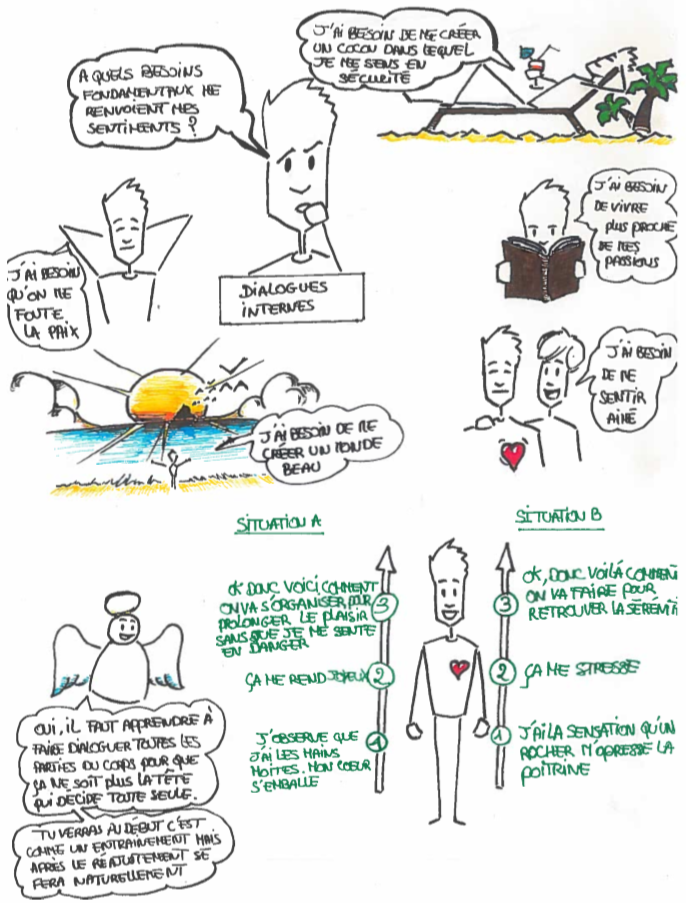 J'AI BESOIN DE ME CRÉER
UN COCON DANS LEQUEL
JE ME SENS EN
SÉCURITÉ
A QUELS BESOINS
FONDAMENTAUX ME
RENVOIENT MES
SENTIMENTS ?
J'AI BESOIN
DE VIVRE
PLUS PROCHE
DE MES
PASSIONS
J'AI BESOIN
QU'ON ME
FOUTE
LA PAIX
DIALOGUES
INTERNES
J'AI BESOIN
DE ME
SENTIR
AIMÉ
J'AI BESOIN DE ME
CRÉER UN MONDE
BEAU
SITUATION A
OK DONC VOICI COMMENT
ON VA S'ORGANISER POUR
PROLONGER LE PLAISIR
SANS QUE JE ME SENTE
EN DANGER
3
ÇA ME REND JOYEUX
2
J'OBSERVE QUE
J'AI LES MAINS
MOITES. MON COEUR
S'EMBALLE
1
SITUATION B
3
OK, DONC VOILÀ COMMEN
ON VA FAIRE POUR
RETROUVER LA SÉRÉNIT
2
ÇA ME STRESSE
1
J'AI LA SENSATION QU'UN
ROCHER M'OPRESSE LA
POITRINE
OUI, IL FAUT APPRENDRE À
FAIRE DIALOGUER TOUTES LES
PARTIES DU CORPS POUR QUE
ÇA NE SOIT PLUS LA TÊTE
QUI DÉCIDE TOUTE SEULE.
TU VERRAS AU DÉBUT C'EST
COMME UN ENTRAINEMENT MAIS
APRÈS LE RÉAJUSTEMENT SE
FERA NATURELLEMENT